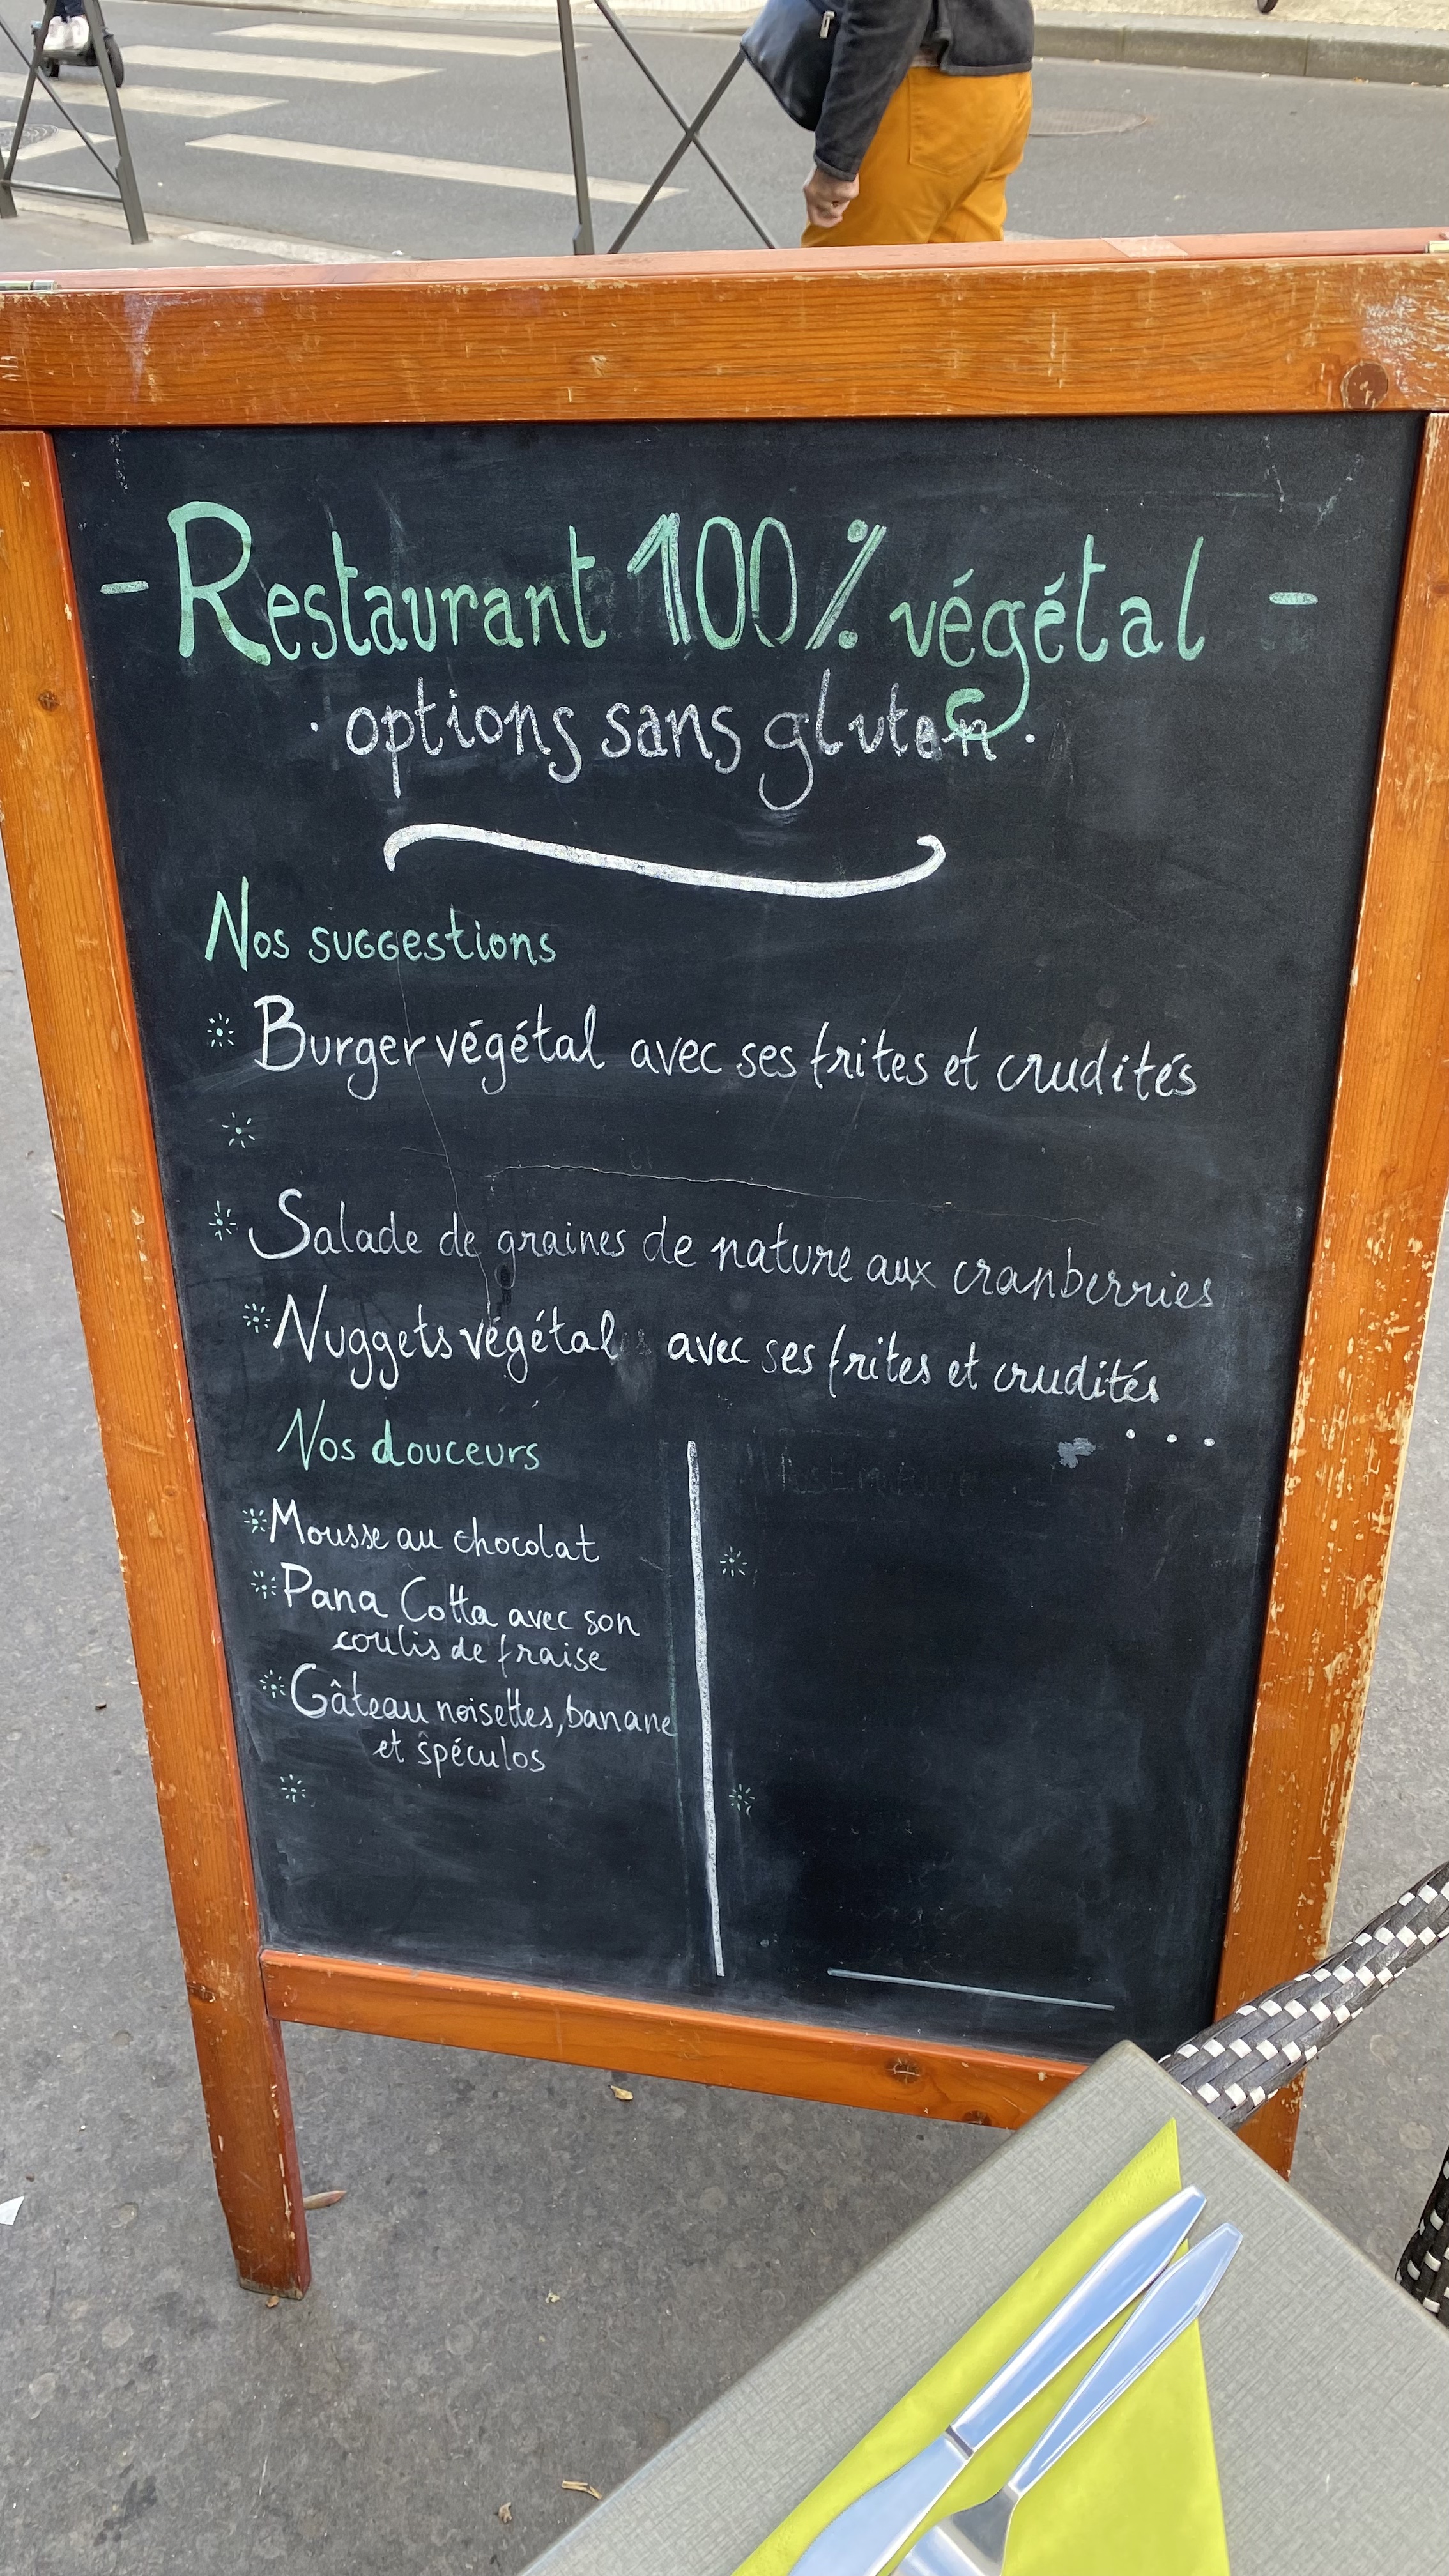 - Restaurant 100% végétal -
· options sans gluten ·
Nos suggestions
Burger végétal avec ses frites et crudités
Salade de graines de nature aux cranberries
Nuggets végétal avec ses frites et crudités
...
Nos douceurs
Mousse au chocolat
Pana Cotta avec son
coulis de fraise
Gâteau noisettes, banane
et spéculos